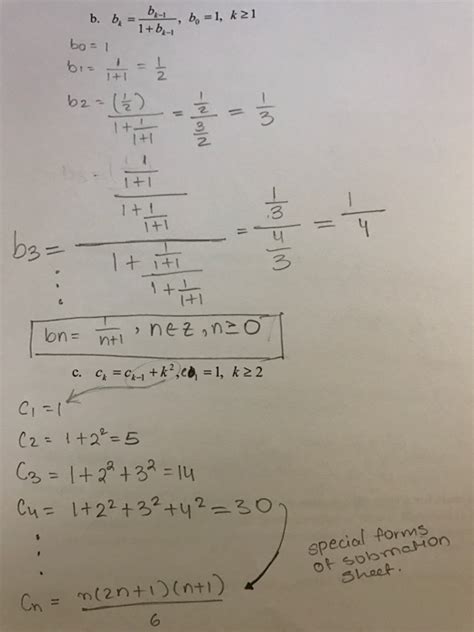 b. b_k = b_{k-1} / (1 + b_{k-1}), b_0 = 1, k ≥ 1
b0 = 1
b1 = 1/(1+1) = 1/2
b2 = (1/2) / (1 + 1/(1+1)) = (1/2) / (3/2) = 1/3
b3 = ((1/(1+1)) / (1 + 1/(1+1))) / (1 + (1/(1+1)) / (1 + 1/(1+1))) = (1/3) / (4/3) = 1/4
⋮
bn = 1/(n+1), n∈Z, n≥0
c. c_k = c_{k-1} + k², c_1 = 1, k ≥ 2
C1 = 1
C2 = 1+2² = 5
C3 = 1+2²+3² = 14
C4 = 1+2²+3²+4² = 30
⋮
Cn = n(2n+1)(n+1) / 6
special forms
of submation
sheet.